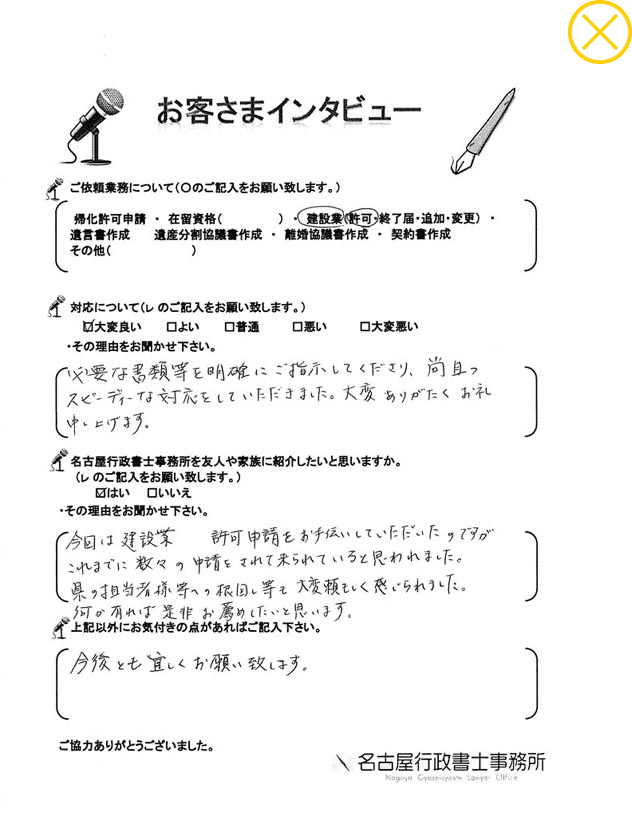 お客さまインタビュー
ご依頼業務について（〇のご記入をお願い致します。）
帰化許可申請 ・ 在留資格（　　　　　） ・ 建設業（許可・終了届・追加・変更） ・
遺言書作成　　遺産分割協議書作成 ・ 離婚協議書作成 ・ 契約書作成
その他（　　　　　　　　）
対応について（レ のご記入をお願い致します。）
☑大変良い　　□よい　　□普通　　□悪い　　□大変悪い
・その理由をお聞かせ下さい。
必要な書類等を明確にご指示してくださり、尚且つ
スピーディーな対応をしていただきました。大変ありがたくお礼
申し上げます。
名古屋行政書士事務所を友人や家族に紹介したいと思いますか。
（レ のご記入をお願い致します。）
☑はい　□いいえ
・その理由をお聞かせ下さい。
今回は建設業　　許可申請をお手伝いしていただいたのですが
これまでに数々の申請をされて来られていると思われました。
県の担当者様等への根回し等も大変頼もしく感じられました。
何か有れば是非お薦めしたいと思います。
上記以外にお気付きの点があればご記入下さい。
今後とも宜しくお願い致します。
ご協力ありがとうございました。
名古屋行政書士事務所
Nagoya Gyoseisyoshi Lawyer Office